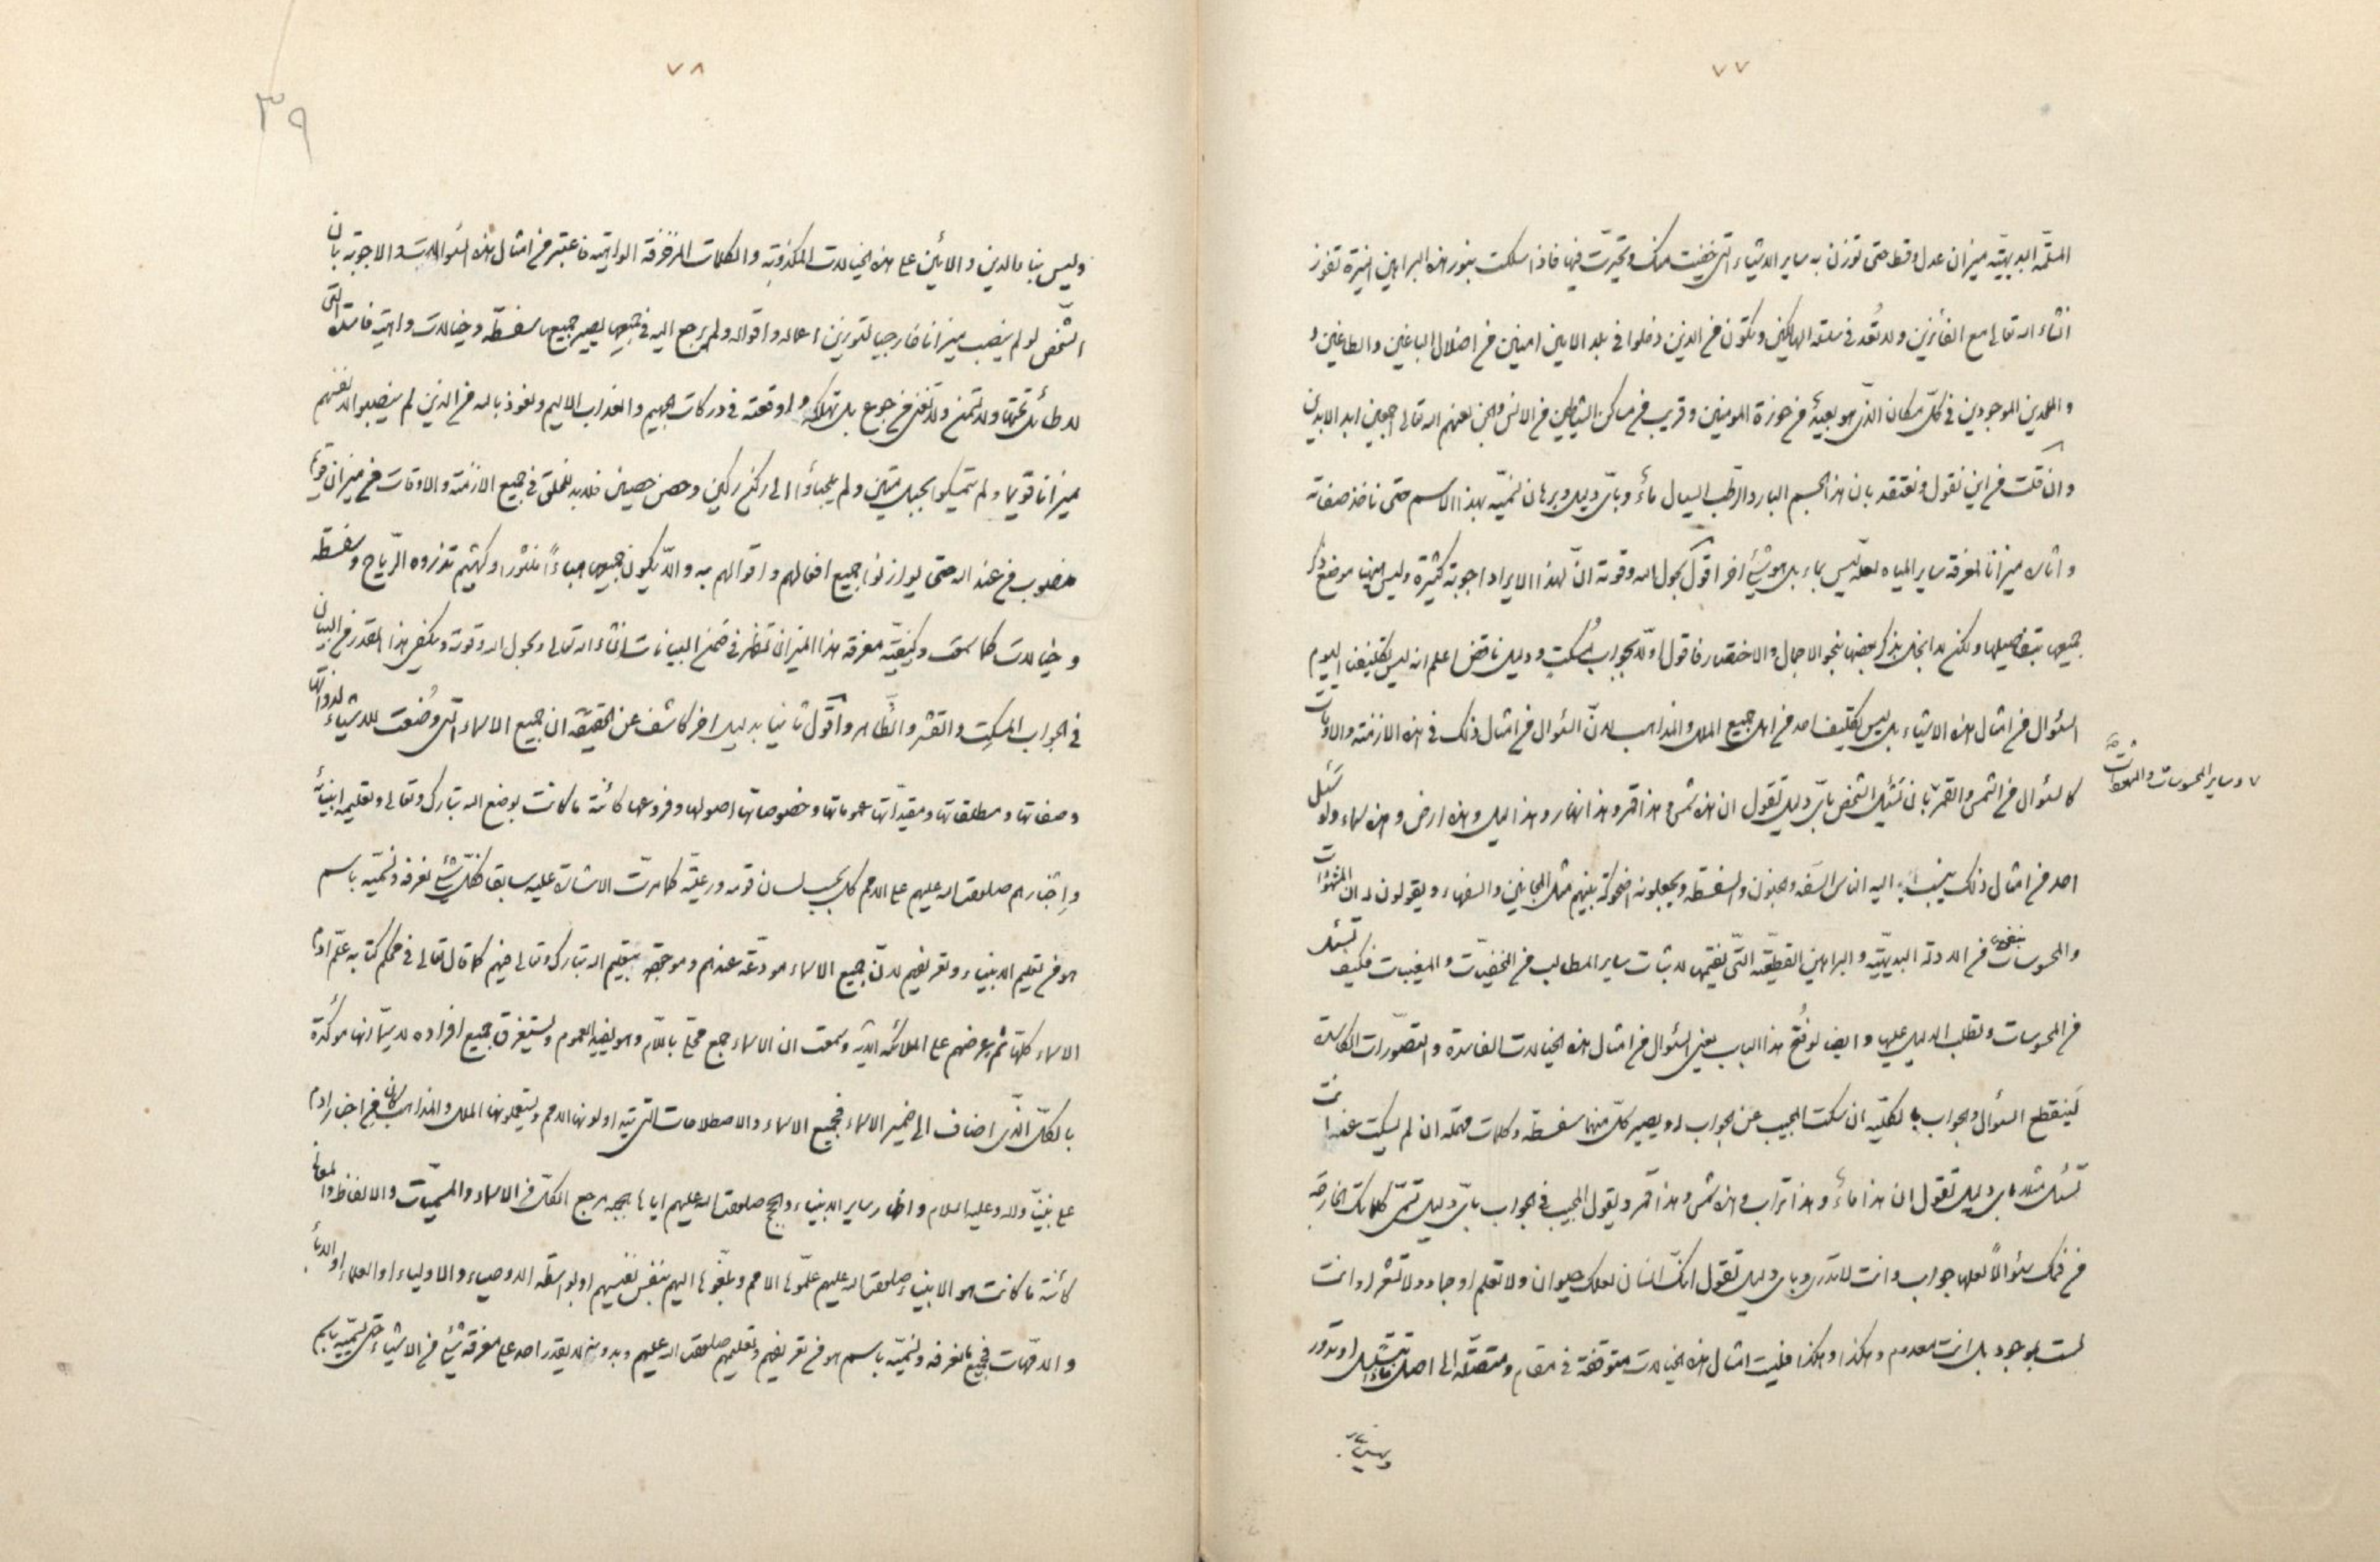 ٧٧
المسلّمة البديهيّة ميزان عدل وقسط حتى توزن به ساير الاشياء التى خفيت عنك وتحيّرت فيها فاذا سلكت بنور هذه البراهين النيّرة تفوز
انشاء الله تعالى مع الفائزين ولا تُعد فى سلسلة الهالكين وتكون من الذين دخلوا فى بلد الامين امنين من اضلال الباغين والطاغين و
والملحدين الموجودين فى كلّ مكان الذى هو بعيد من حوزة المؤمنين وقريب من مساكن الشياطين من الانس والجن لعنهم الله تعالى اجمعين ابد الابدين
وان قلت من اين نقول ونعتقد بان هذا الجسم البارد الرطب السيال ماء وباىّ دليل وبرهان نسمّيه بهذا الاسم حتى ناخذ صفاته
واثاره ميزانا لمعرفة ساير المياه لعلّه ليس بماء بل هو شئ اخر اقول بحول الله وقوته انّ لهذا الايراد اجوبة كثيرة وليس هيهنا موضع ذكر
جميعها بتفاصيلها ولكن لا بخل بذكر بعضها بنحو الاجمال والاختصار فاقول اولا بجواب مُسكت ودليل ناقض اعلم انه ليس تكليفنا اليوم
السئوال من امثال هذه الاشياء بل ليس بتكليف احد من اهل جميع الملل والمذاهب لانّ السئوال من امثال ذلك فى هذه الازمنة والاوقات
كالسئوال من الشمس والقمر بان تسئل الشخص باىّ دليل تقول ان هذه شمس وهذا قمر وهذا نهار وهذا ليل وهذه ارض وهذه سماء ولو سَئَل
وساير المحسوسات
احد من امثال ذلك ينسب اليه الناس السفه والجنون والسفسطة ويجعلونه اضحوكة بينهم مثل المجانين والسفهاء ويقولون له ان المشهودات
والمحسوسات بنفسها من الادلة البديهيّة والبراهين القطعيّة التى نقيمها لاثبات ساير المطالب من الخفيّات والمغيبات فكيف تسئل
من المحسوسات وتطلب الدليل عليها وايضا لو فُتح هذا الباب يعنى السئوال من امثال هذه الخيالات الفاسدة والتصوّرات الكاسدة
لينقطع السئوال والجواب بالكليّة ان سكت المجيب عن الجواب او يصير كلّ منهما سفسطة وكلمات مهملة ان لم يسكت عنه انت
تسئل مثلا باى دليل تقول ان هذا ماء وهذا تراب وهذه شمس وهذا قمر ويقول المجيب فى الجواب باىّ دليل تسمّى كلماتك الخارجة
من فمك سئوالاً لعلها جواب وانت لا تدرى وباى دليل تقول انك انسان لعلك حيوان ولا تعلم او جماد ولا تشعر او انت
لست بموجود بل انت معدوم وهكذا وهكذا فليست امثال هذه الخيالات متوقفة فى مقام ومتصلة الى اصل بل تتسلسل او تدور
وليس
٧٨
٣٩
وليس بناء الدين والايمان على هذه الخيالات المكذوبة والكلمات المزخرفة الواهية فاعتبر من امثال هذه السئوالات والاجوبة بان
الشخص لو لم ينصب ميزانا خارجيا لتوزين اعماله واقواله ولم يرجع اليه فى جميعها يصير جميعها سفسطة وخيالات واهية فاسدة التى
لا طائل تحتها ولا تسمن ولا تغنى من جوع بل تهلكه واوقعته فى دركات الجحيم والعذاب الاليم ونعوذ بالله من الذين لم ينصبوا لانفسهم
ميزانا قويما ولم تمسّكوا بحبل متين ولم يلجأوا الى ركن ركين وحصن حصين فلابد للخلق فى جميع الازمنة والاوقات من ميزان قويم
منصوب من عند الله حتى يوازنوا جميع افعالهم واقوالهم به والا يكون جميعها هباءً منثورا وكهشيم تذروه الرّياح وسفسطة
وخيالات كما سمعت وكيفيّة معرفة هذا الميزان تظهر فى ضمن البيانات انشاء الله تعالى وبحول الله وقوته ويكفى هذا القدر من البيان
فى الجواب المسكت والقشر والظّاهر واقول ثانيا بدليل اخر كاشف عن الحقيقة ان جميع الاسماء التى وُضعت للاشياء لذواتها
وصفاتها ومطلقاتها ومقيداتها عموماتها وخصوصاتها اصولها وفروعها كائنة ما كانت بوضع الله تبارك وتعالى وتعليمه انبيائه
واخبارهم صلوات الله عليهم على الامم كل بحسب لسان قومه ورعيته كما مرّت الاشارة عليه سابقا فكلّ شئ نعرفه ونسمّيه باسم
هو من تعليم الانبياء وتعريفهم لانّ جميع الاسماء مودّعة عندهم وموحى بتعليم الله تبارك وتعالى منهم كما قال تعالى فى محكم كتابه علّم ادم
الاسماء كلّها ثم عرضهم على الملائكة الاية وسمعت ان الاسماء جمع محلّى باللام وهو يفيد العموم ويستغرق جميع افراده لا سيّما انها مؤكدة
بالكلّ الذى اضاف الى ضمير الاسماء فجميع الاسماء والاصطلاحات التى يتداولونها الامم ويستعملونها الملل والمذاهب كان من اخبار ادم
على نبيّنا واله وعليه السلام واظهار ساير الانبياء والحجج صلوات الله عليهم اياها بجهة مرجع الكلّ من الاسماء والمسمّيات والالفاظ والمعانى
كائنة ما كانت هو الانبياء صلوات الله عليهم علّموها الامم وبلّغوها اليهم بنفس نفسهم او بواسطة الاوصياء والاولياء او العلماء او الاباء
والامّهات فجميع ما نعرفه ونسمّيه باسم هو من تعريفهم وتعليمهم صلوات الله عليهم وبدونهم لا يقدر احد على معرفة شئ من الاشياء حتى يسمّيه باسم